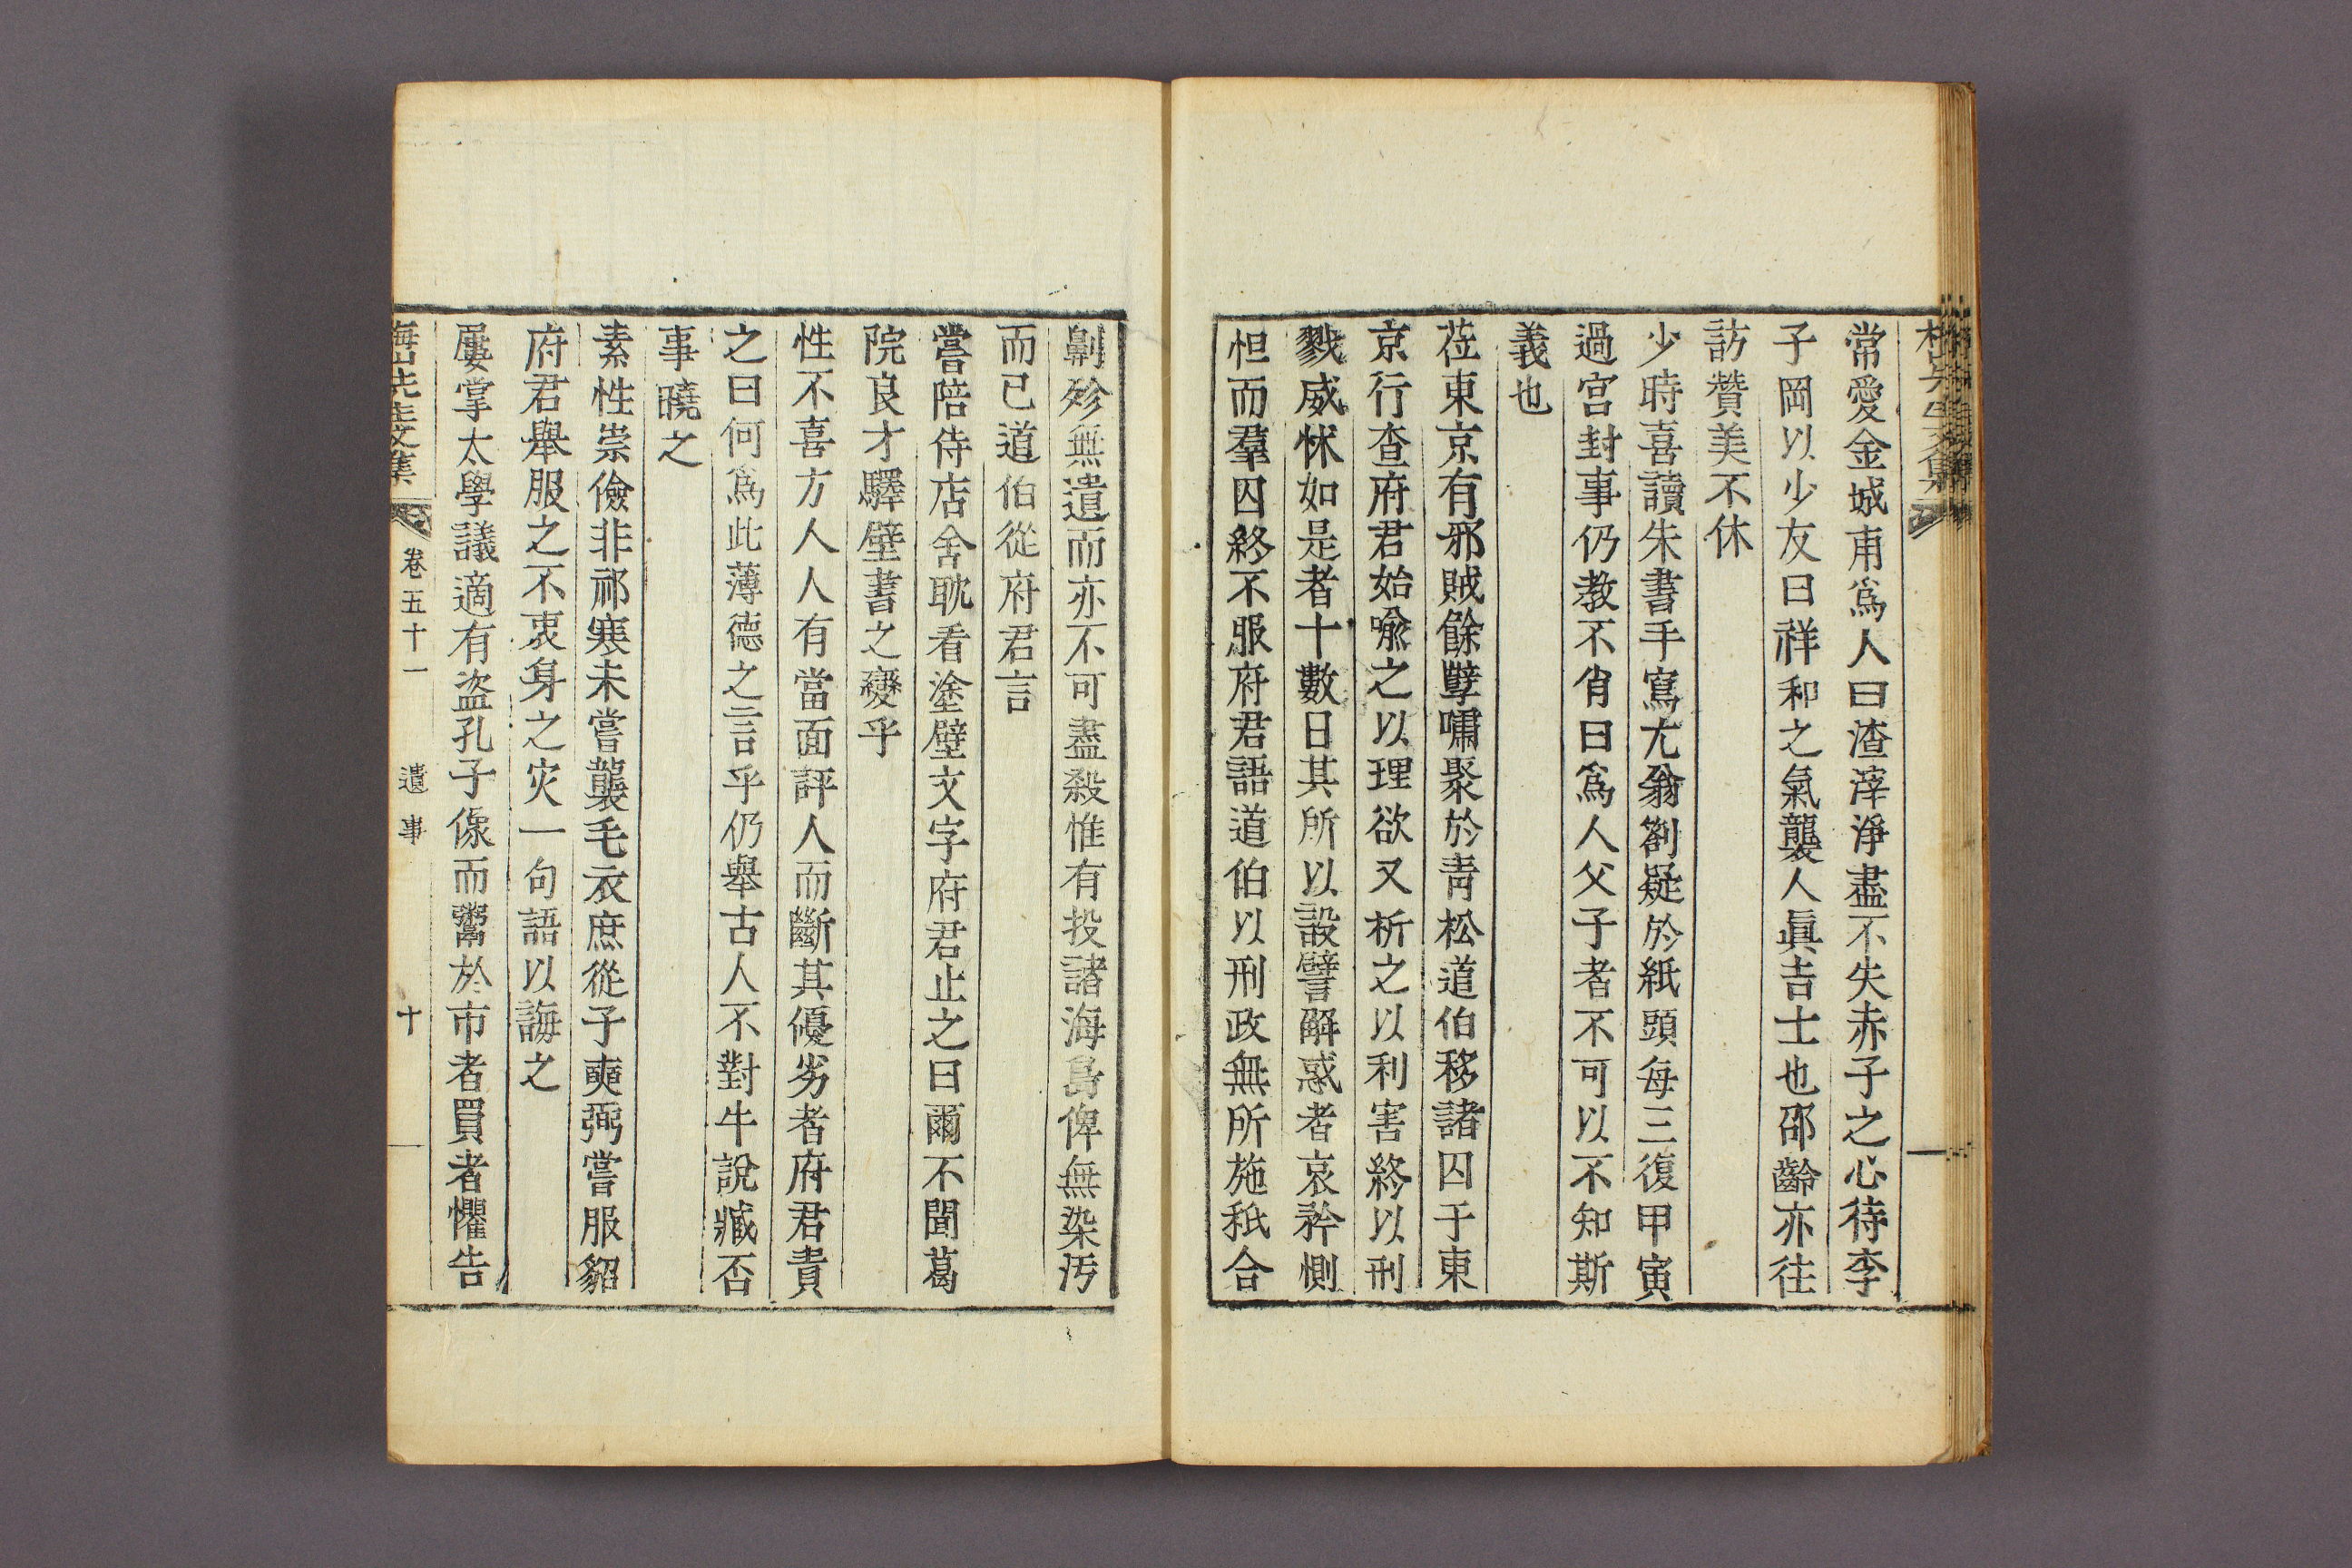 常愛金城甫爲人曰渣滓淨盡不失赤子之心待李
子岡以少友曰祥和之氣襲人眞吉士也邵齡亦往
訪贊美不休
少時喜讀朱書手寫尤翁劄疑於紙頭每三復甲寅
過宮封事仍教不肖曰爲人父子者不可以不知斯
義也
莅東京有邪賊餘孼嘯聚於靑松道伯移諸囚于東
京行查府君始喩之以理欲又析之以利害終以刑
戮威怵如是者十數日其所以設譬解惑者哀矜惻
怛而羣囚終不服府君語道伯以刑政無所施秖合
劓殄無遺而亦不可盡殺惟有投諸海島俾無染汚
而已道伯從府君言
嘗陪侍店舍耽看塗壁文字府君止之曰爾不聞葛
院良才驛壁書之變乎
性不喜方人人有當面評人而斷其優劣者府君責
之曰何爲此薄德之言乎仍舉古人不對牛說臧否
事曉之
素性崇儉非祁寒未嘗襲毛衣庶從子奭弼嘗服貂
府君舉服之不衷身之灾一句語以誨之
屢掌太學議適有盜孔子像而鬻於市者買者懼告
梅山先生文集 卷五十一 遺事 十